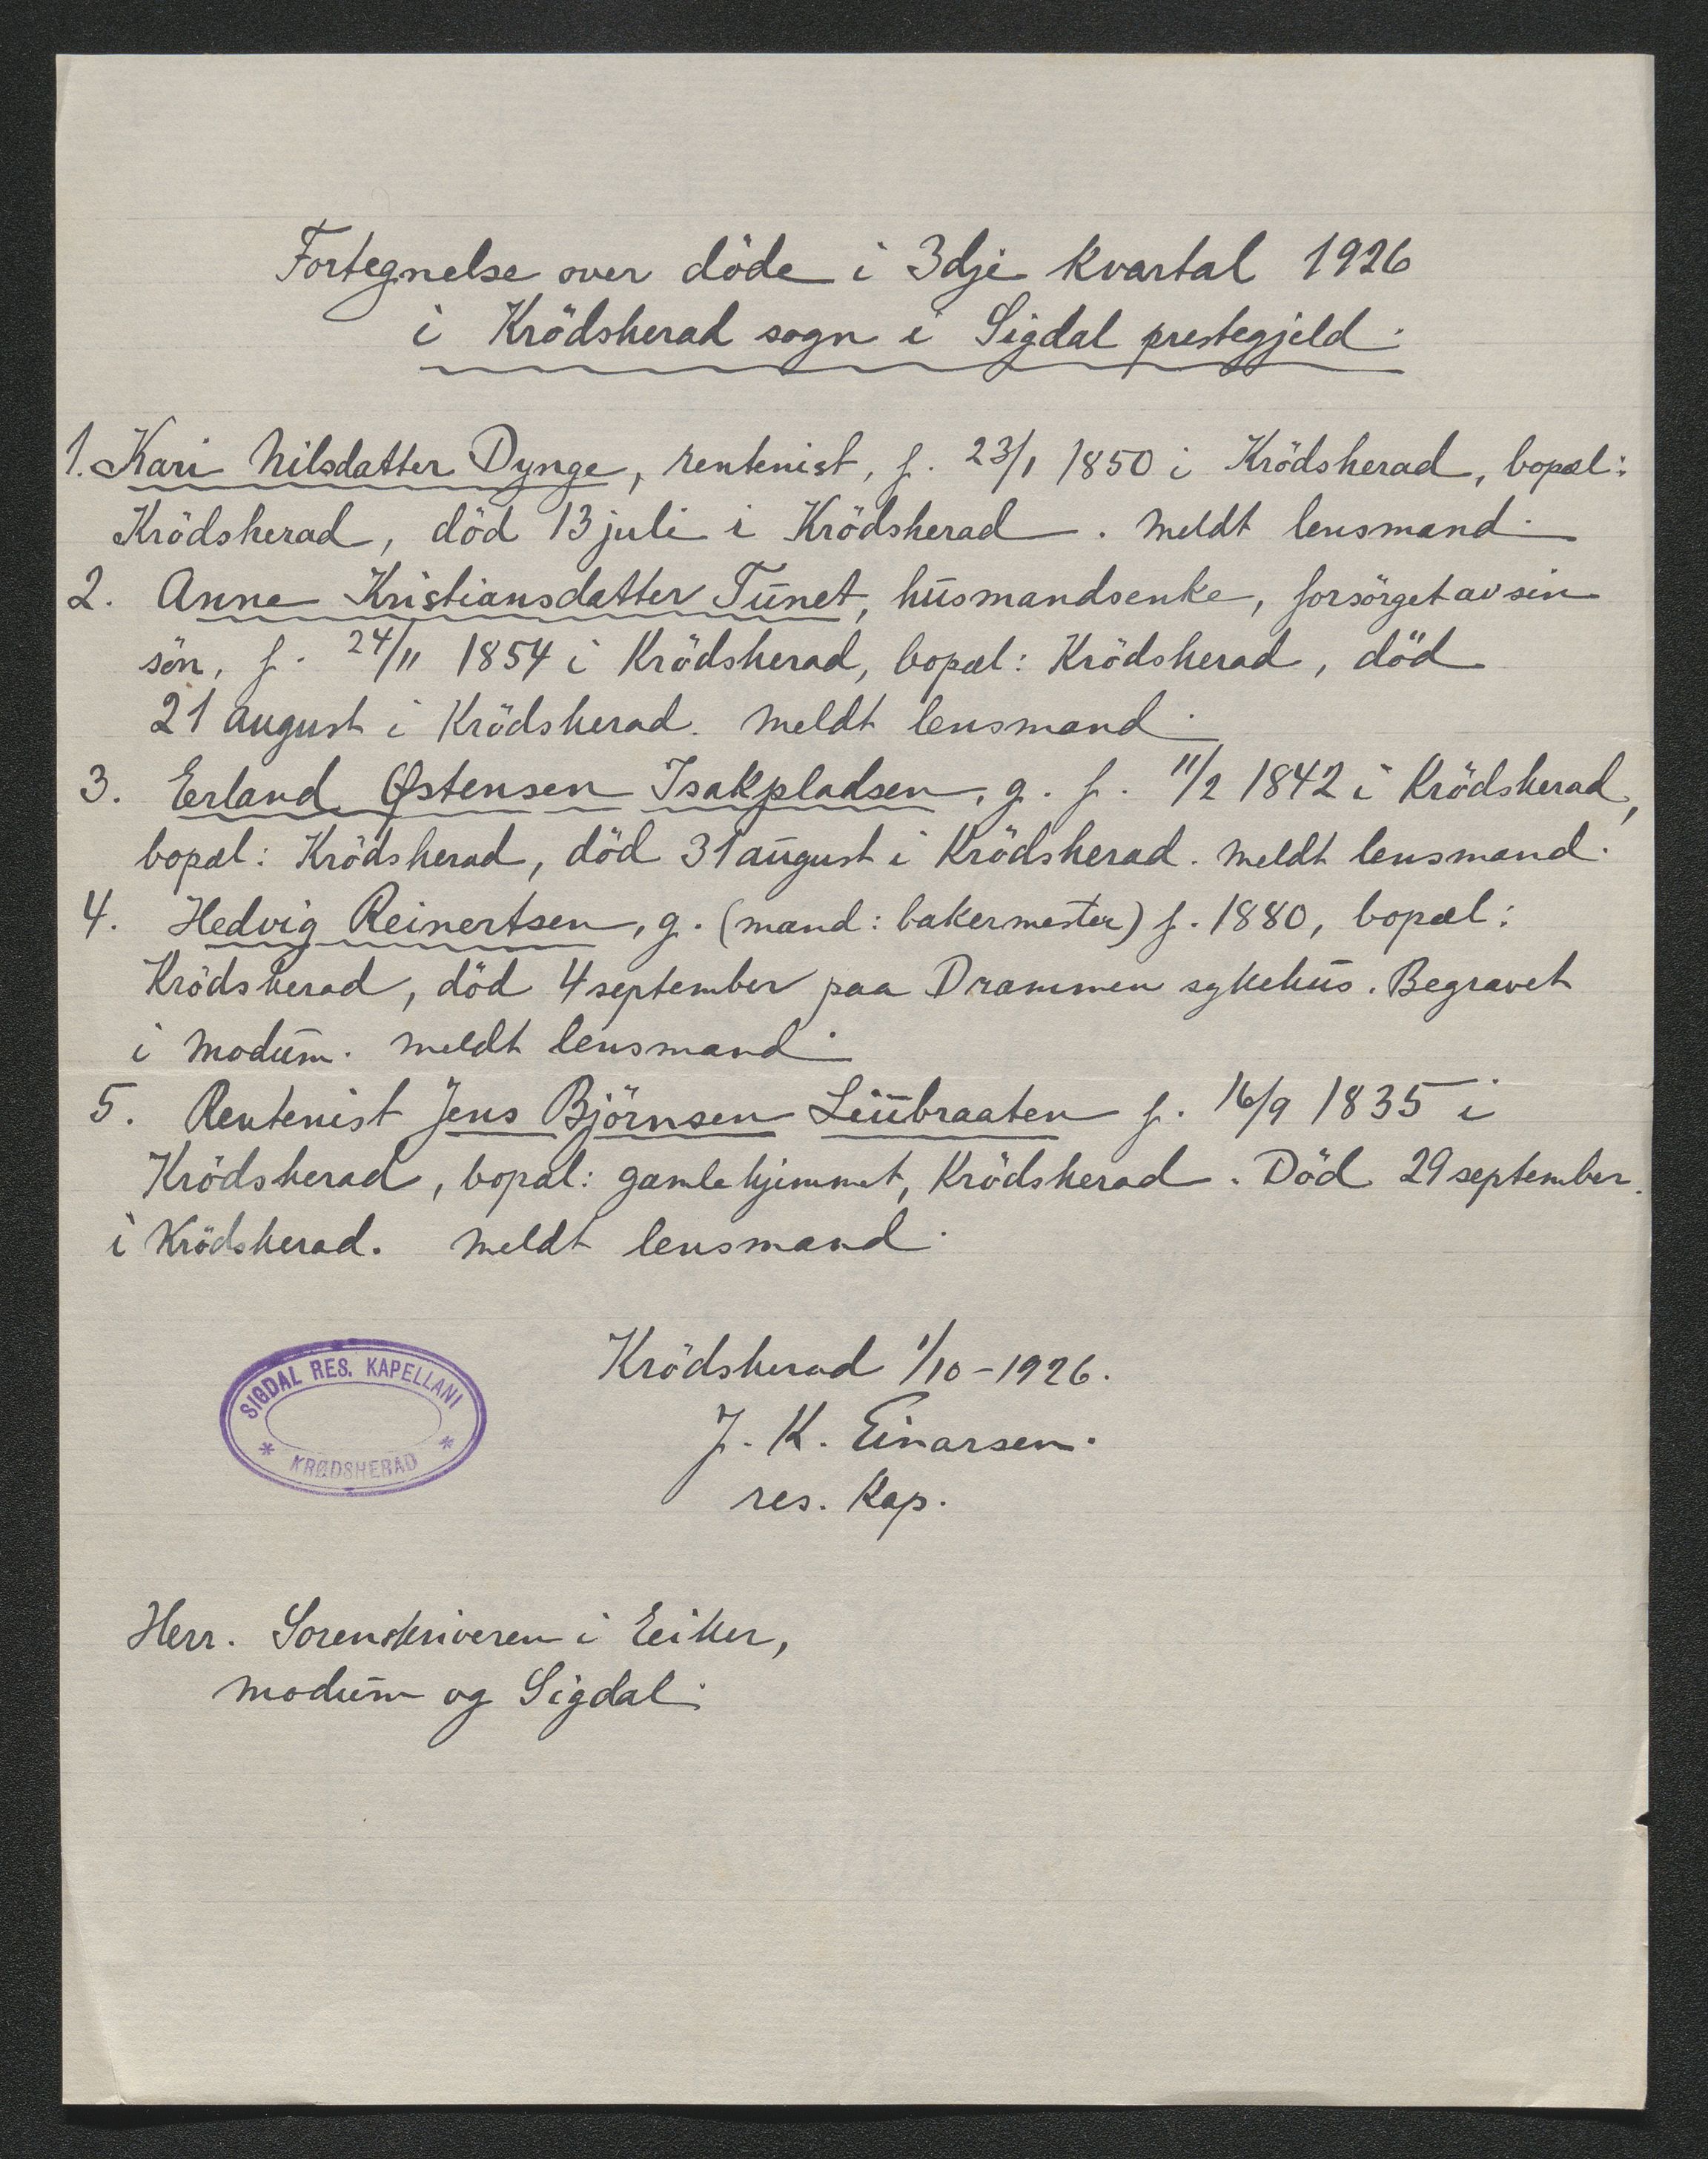 Fortegnelse over döde i 3dje kvartal 1926
i Krödsherad sogn i Sigdal prestegjeld.
1. Kari Nilsdatter Dynge, rentenist, f. 23/1 1850 i Krödsherad, bopæl:
Krödsherad, död 13 juli i Krödsherad. Meldt lensmand.
2. Anne Kristiansdatter Tunet, husmandsenke, forsörget av sin
sön, f. 24/11 1854 i Krödsherad, bopæl: Krödsherad, död
21 august i Krödsherad. Meldt lensmand.
3. Erland Østensen Isakpladsen, g. f. 11/2 1842 i Krödsherad,
bopæl: Krödsherad, död 31 august i Krödsherad. Meldt lensmand.
4. Hedvig Reinertsen, g. (mand: bakermester) f. 1880, bopæl:
Krödsherad, död 4 september paa Drammen sykehus. Begravet
i Modum. Meldt lensmand.
5. Rentenist Jens Björnsen f. 16/9 1835 i
Krödsherad, bopæl: gamlehjemmet, Krödsherad. Död 29 september.
i Krödsherad. Meldt lensmand.
SIGDAL RES. KAPELLANI
* KRØDSHERAD *
Krödsherad 1/10-1926.
J. K. Einarsen.
res. Kap.
Herr. Sorenskriveren i Eiker,
Modum og Sigdal.